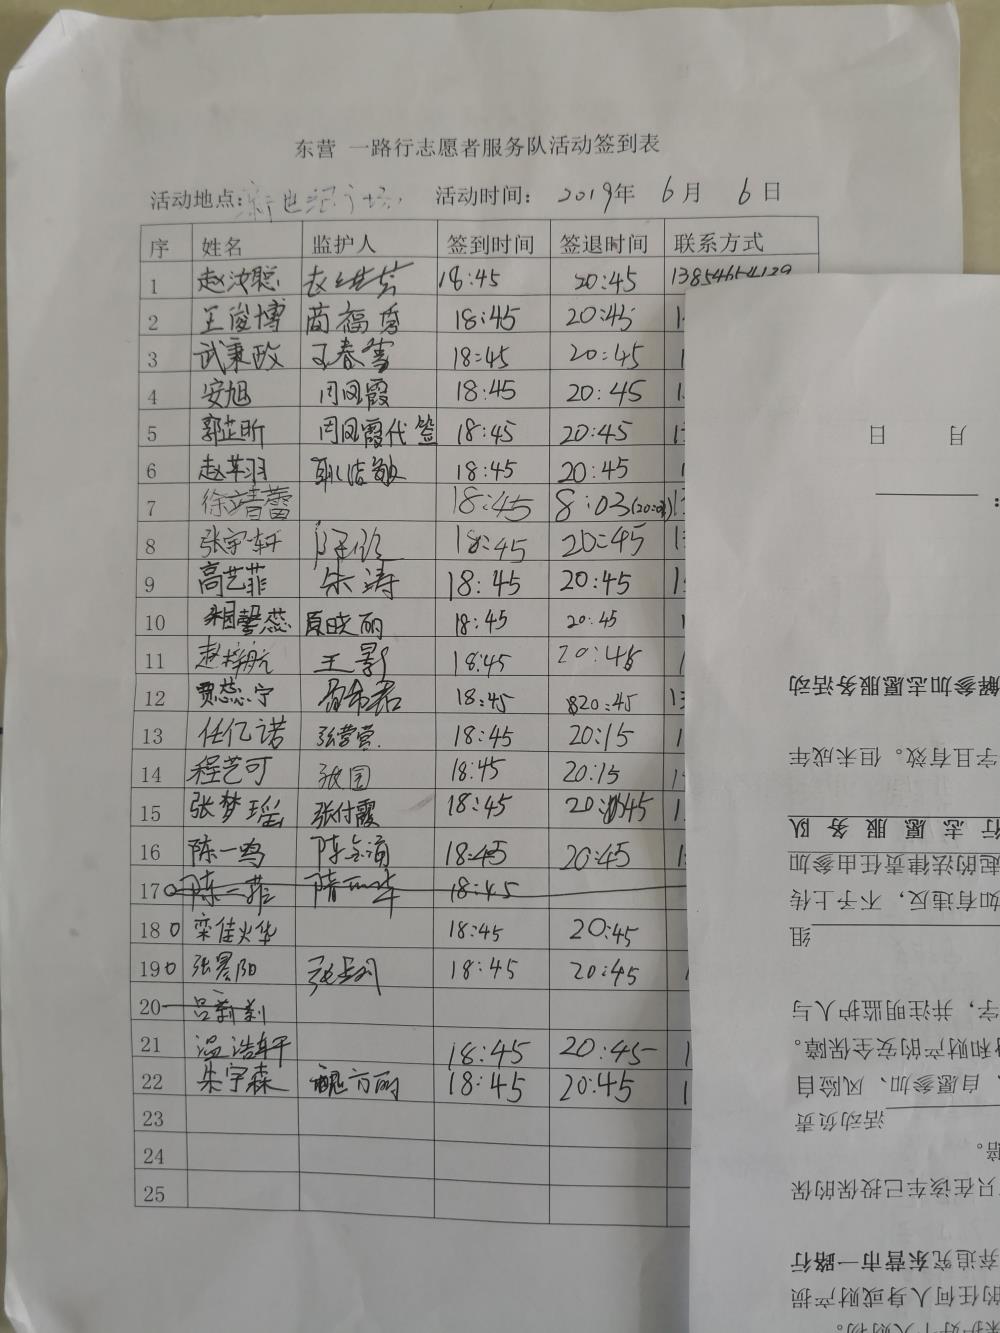 东营 一路行志愿者服务队活动签到表
活动地点: 新世纪广场 活动时间: 2019年 6月 6日
序 姓名 监护人 签到时间 签退时间 联系方式
1 赵汝聪 18:45 20:45 13854654129
2 王俊博 蔺福秀 18:45 20:45
3 武秉政 王春雪 18:45 20:45
4 安旭 周凤霞 18:45 20:45
5 郭芷昕 周凤霞代签 18:45 20:45
6 赵苹羽 耿洁敏 18:45 20:45
7 徐靖蕾 18:45 8:03(20:03)
8 张宇轩 18:45 20:45
9 高艺菲 朱涛 18:45 20:45
10 馨蕊 夏晓丽 18:45 20:45
11 赵梓航 王影 18:45 20:45
12 贾蕊宁 18:45 20:45
13 任亿诺 张营营 18:45 20:15
14 程艺可 张园 18:45 20:15
15 张梦瑶 张付霞 18:45 20:45
16 陈一鸣 陈 18:45 20:45
17 陈一菲 隋 18:45
18 栾佳火华 18:45 20:45
19 张景阳 18:45 20:45
20 吕
21 温浩轩 18:45 20:45
22 朱宇森 魏方丽 18:45 20:45
23
24
25
月 日
:
解参加志愿服务活动
字且有效。但未成年
行志愿服务队
起的法律责任由参加
如有违反，不予上传
组
字，并注明监护人与
身和财产的安全保障。
，自愿参加、风险自
活动负责
赔。
只在该车已投保的保
弃追究东营市一路行
的任何人身或财产损